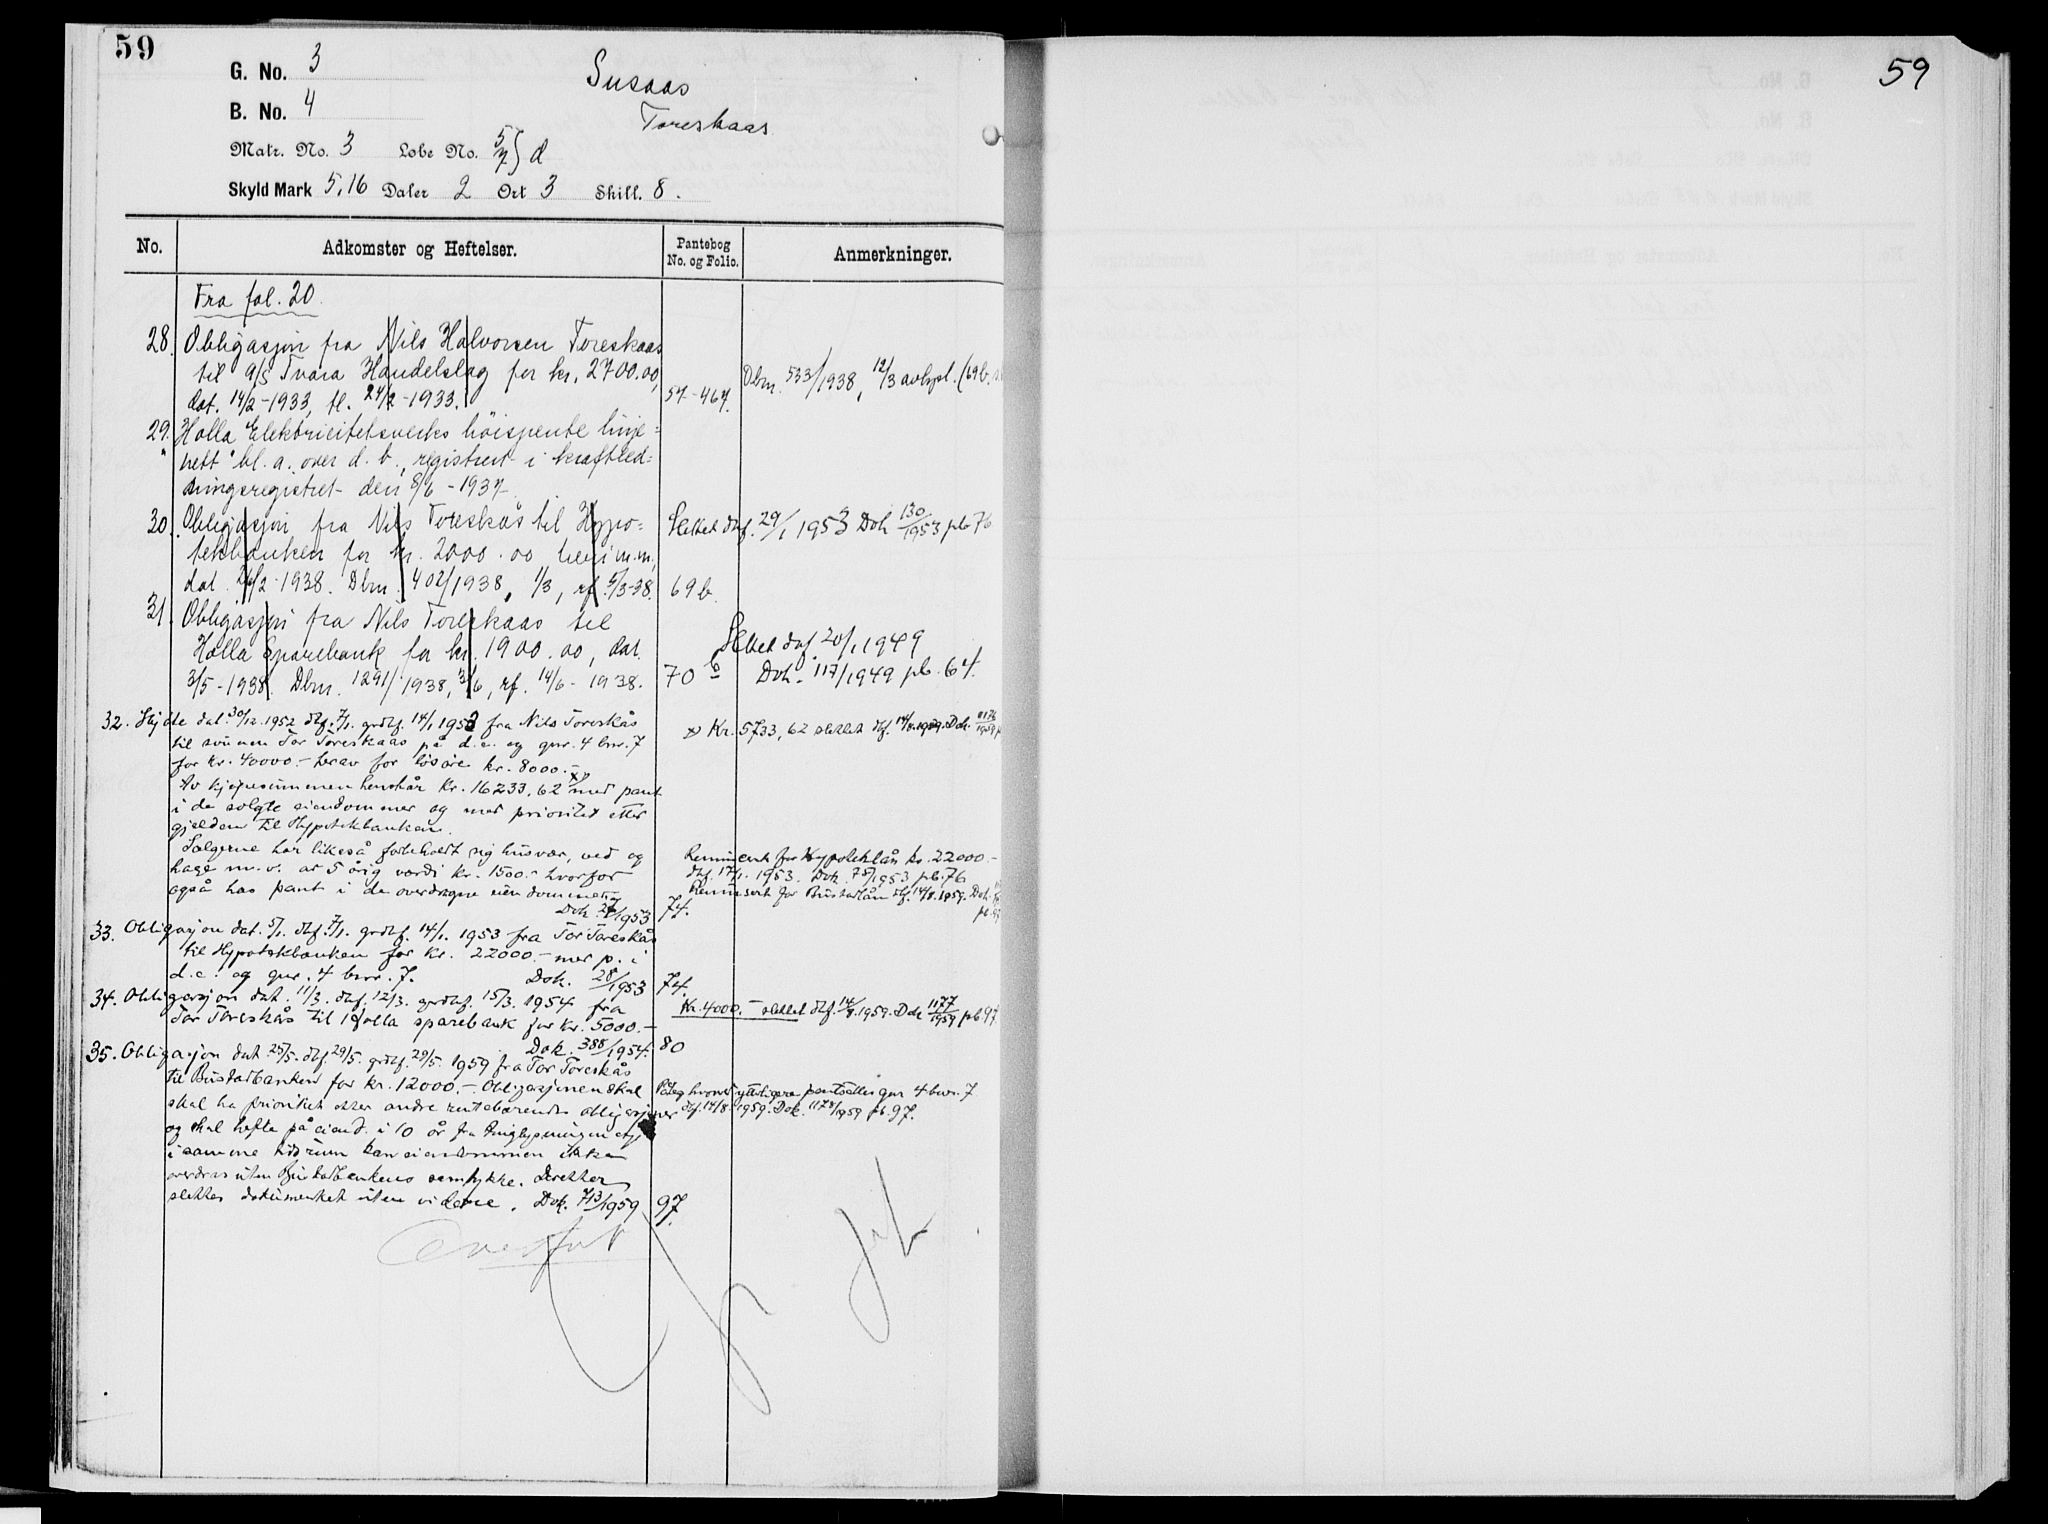 59
G. No. 3
Susaas
B. No. 4
Toreskaas
Matr. No. 3 Løbe No. 5/7} d
Skyld Mark 5,16 Daler 2 Ort 3 Skill. 8.
No. Adkomster og Heftelser. Pantebog No. og Folio. Anmerkninger.
Fra fol. 20.
28. Obligasjon fra Nils Halvorsen Toreskaas
til A/S Tvara Handelslag for kr. 2700.00,
dat. 14/2-1933, tl. 24/2-1933. 57-467.
Dbnr. 533/1938, 12/3 avlyst. (69b.
29. Holla Elektricitetsverks höispente linje=
nett bl. a. over d. b., registrert i kraftled=
ningsregistret den 8/6-1937
30. Obligasjon fra Nils Toreskås til Hypo=
tekbanken for kr. 2000.00 m.m.,
dat. 26/2-1938. Dbnr. 402/1938, 1/3, rf. 5/3-38. 69b.
Slettet dbf. 29/1 1953 Dok 130/1953 pb 76
31. Obligasjon fra Nils Toreskaas til
Holla Sparebank for kr. 1900.00, dat.
3/5-1938. Dbnr. 1291/1938, 3/6, rf. 14/6-1938. 70 b
Slettet dbf 20/1 1949
Dok. 117/1949 pb. 64.
32. Skjöte dat. 30/12.1952 dbf. 7/1. grdbf. 14/1 1953 fra Nils Toreskås
til sönnen Tor Toreskaas på d.e. og gnr. 4 bnr. 7
for kr. 40000.- herav for lösöre kr. 8000.-
Av kjöpesummen henstår kr. 16233,62 x) med pant
i de solgte eiendommer og med prioritet etter
gjelden til Hypotekbanken.
Selgerne har likeså forbeholdt sig husvær, ved og
hage m.v. av 5 årig verdi kr. 1500.- hvorfor
også has pant i de overdragne eiendommer.
Dok 27/1953 74.
x) Kr. 5733,62 slettet dbf. 14/8.1959. Dok. 1176/1959
for Hypoteklån kr. 22000.-
dbf. 17/1. 1953. Dok. 75/1953 pb. 76
for Bustadlån dbf. 14/8.1959. Dok.
33. Obligasjon dat. 5/1. dbf. 7/1. grdbf. 14/1. 1953 fra Tor Toreskås
til Hypotekbanken for kr. 22000.- med p. i
d.e. og gnr. 4 bnr. 7. Dok. 28/1953 74.
34. Obligasjon dat. 11/3. dbf. 12/3. grdbf. 15/3. 1954 fra
Tor Toreskås til Holla sparebank for kr. 5000.-
Dok. 388/1954. 80
Kr. 4000.- slettet dbf. 14/8.1959. Dok 1177/1959 pb. 97.
35. Obligasjon dat. 25/5. dbf 29/5. grdbf. 29/5. 1959 fra Tor Toreskås
til Bustadbanken for kr. 12000.- Obligasjonen skal
skal ha prioritet etter andre rentebærende obligasjoner
og skal hefte på eiend. i 10 år fra tinglysningen og
i samme tidsrum kan eiendommen ikke
overdras uten Bustadbankens samtykke. Deretter
slettes dokumentet uten videre. Dok. 713/1959 97.
Påteg hvoretter ytterligere pantsettes gnr 4 bnr. 7
dbf. 14/8. 1959. Dok. 1178/1959 pb. 97.
Overført
59